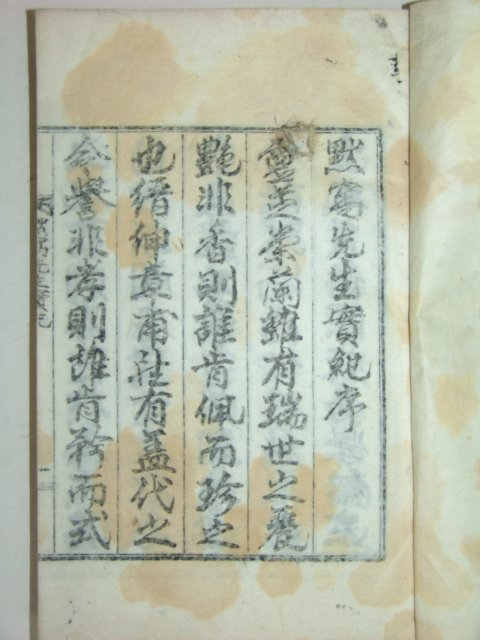 默窩先生實紀序
靈芝崇蘭雖有瑞世之麗
艷非香則誰肯佩而珍之
也縉紳章甫雖有蓋代之
令譽非孝則誰肯矜而式